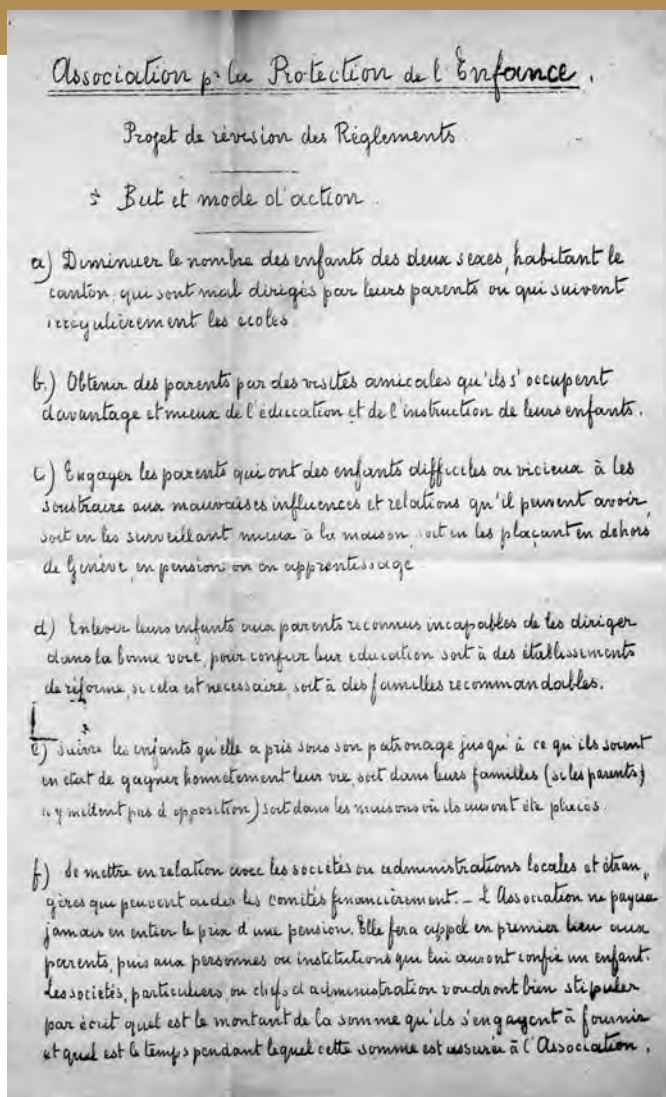 Association pr la Protection de l'Enfance.
Projet de révision des Réglements
But et mode d'action.
a) Diminuer le nombre des enfants des deux sexes, habitant le
canton, qui sont mal dirigés par leurs parents ou qui suivent
irrégulièrement les écoles.
b.) Obtenir des parents par des visites amicales qu'ils s'occupent
davantage et mieux de l'éducation et de l'instruction de leurs enfants.
c) Engager les parents qui ont des enfants difficiles ou vicieux à les
soustraire aux mauvaises influences et relations qu'il peuvent avoir,
soit en les surveillant mieux à la maison, soit en les plaçant en dehors
de Genève, en pension ou en apprentissage
d) Enlever leurs enfants aux parents reconnus incapables de les diriger
dans la bonne voie, pour confier leur education soit à des établissements
de réforme, si cela est nécessaire, soit à des familles recommandables.
e) Suivre les enfants qu'elle a pris sous son patronage jusqu'à ce qu'ils soient
en état de gagner honnêtement leur vie, soit dans leurs familles (si les parents)
n'y mettent pas d'opposition) soit dans les maisons où ils auront été placés.
f) Se mettre en relation avec les sociétés ou administrations locales et étran,
gères qui peuvent aider les Comités financièrement. – L'Association ne payera
jamais en entier le prix d'une pension. Elle fera appel en premier lieu aux
parents, puis aux personnes ou institutions qui lui auront confié un enfant.
Les sociétés, particuliers, ou chefs d'administration voudront bien stipuler
par écrit quel est le montant de la somme qu'ils s'engagent à fournir
et quel est le temps pendant lequel cette somme est assurée à l'Association.